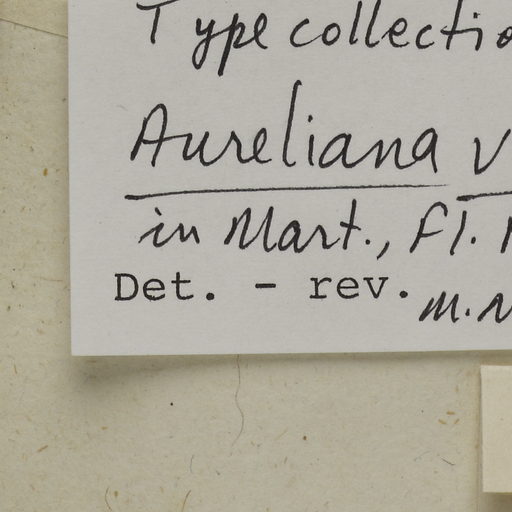 Type collectio
Aureliana v
in Mart., Fl.
Det. - rev. M. N